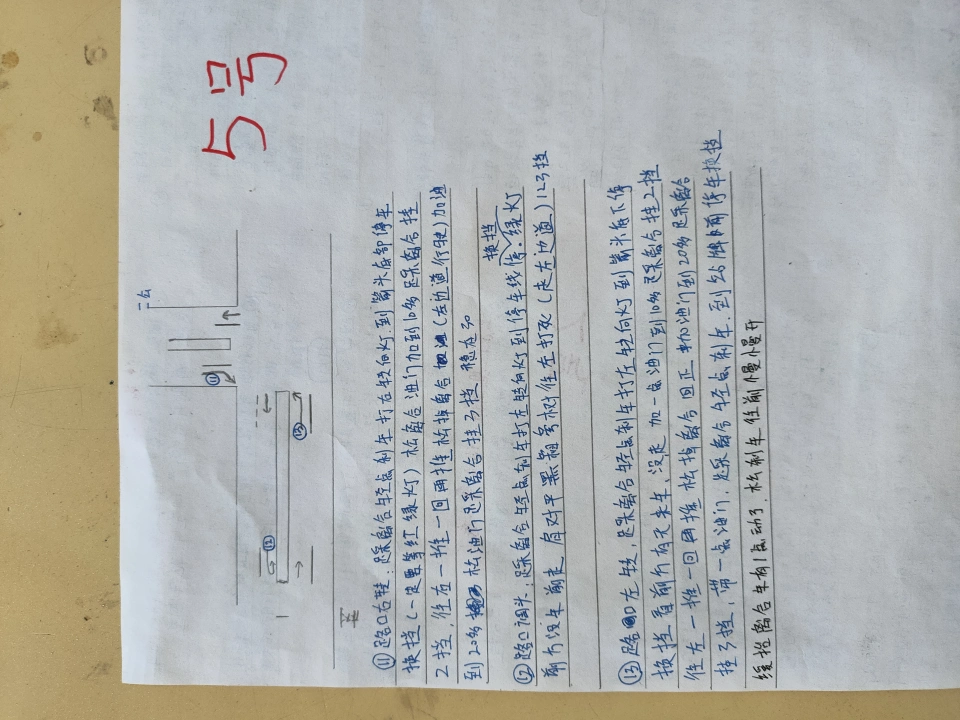 5号
⑪
⑫
⑬
⑪路口右转:踩离合轻点刹车打右转向灯.到箭头底部停车
换挡(一定要等红绿灯)松离合油门加到10多踩离合挂
2挡,往右一推一回再推松掉离合加油(右边道行驶)加油
到20多松油门踩离合挂3挡稳在30
换挡
⑫路口调头:踩离合轻点刹车打左转向灯到停车线停.绿灯
前方没车前走身对平黑箱旁树往左打死(走左边道)123挡
⑬路口左转踩离合轻点刹车打左转向灯到箭头底下停
换挡看前方有无来车、没走加一点油门到10多踩离合挂2挡
往左一推一回再推松掉离合回正加油门到20多踩离合
挂3挡,带一点油门,踩离合轻点刹车.到 牌前停车换挡
缓抬离合车有1点动了,松刹车往前慢慢开